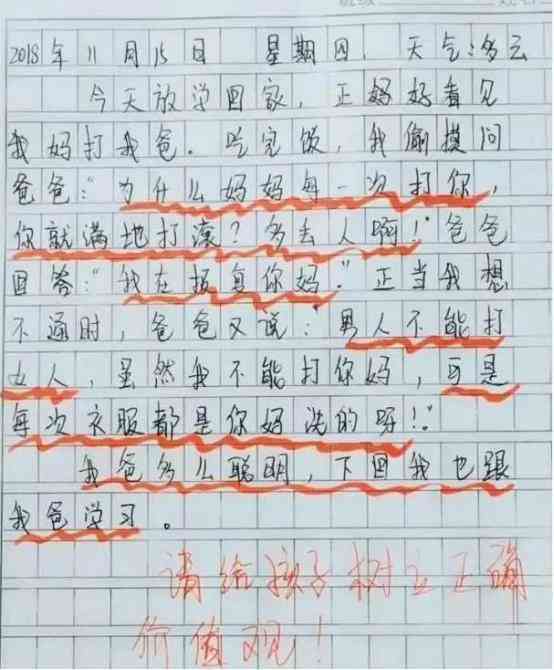 2018年11月15日 星期四 天气:多云
今天放学回家,正妈好看见
我妈打我爸。吃完饭,我偷摸问
爸爸:“为什么妈妈每一次打你,
你就满地打滚?多丢人啊!”爸爸
回答:“我在报复你妈。”正当我想
不通时,爸爸又说:男人不能打
女人,虽然我不能打你妈,可是
每次衣服都是你妈洗的呀!”
我爸多么聪明,下回我也跟
我爸学习。
请给孩子树立正确
价值观!